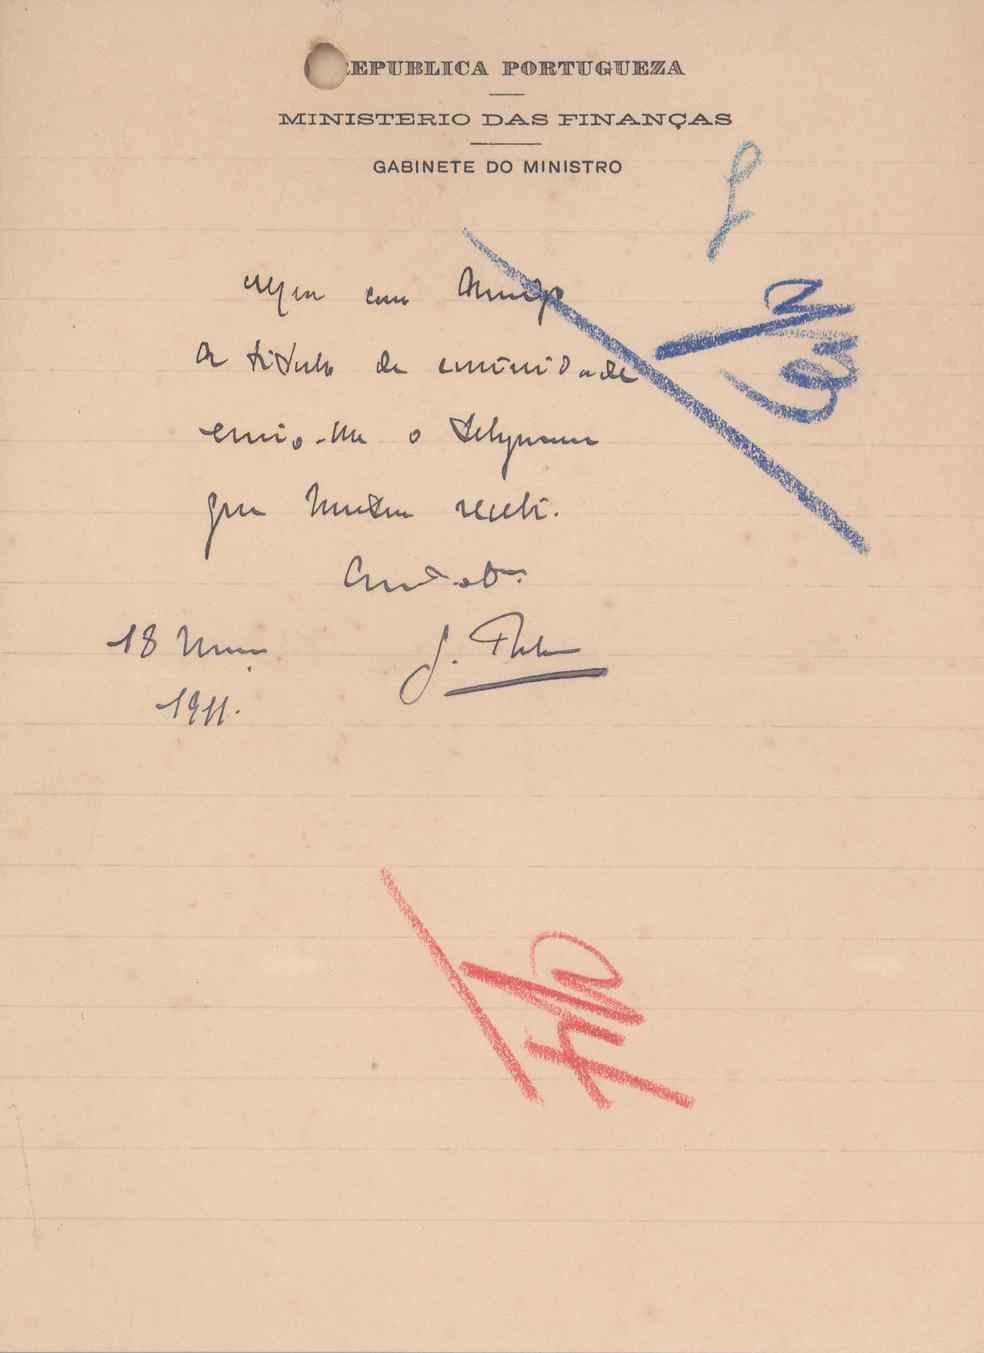 REPUBLICA PORTUGUEZA
MINISTERIO DAS FINANÇAS
GABINETE DO MINISTRO
Meu caro Amigo
A titulo de curiosidade
envio-lhe o telegrama
que hontem recebi.
18 Maio
1911.
J.